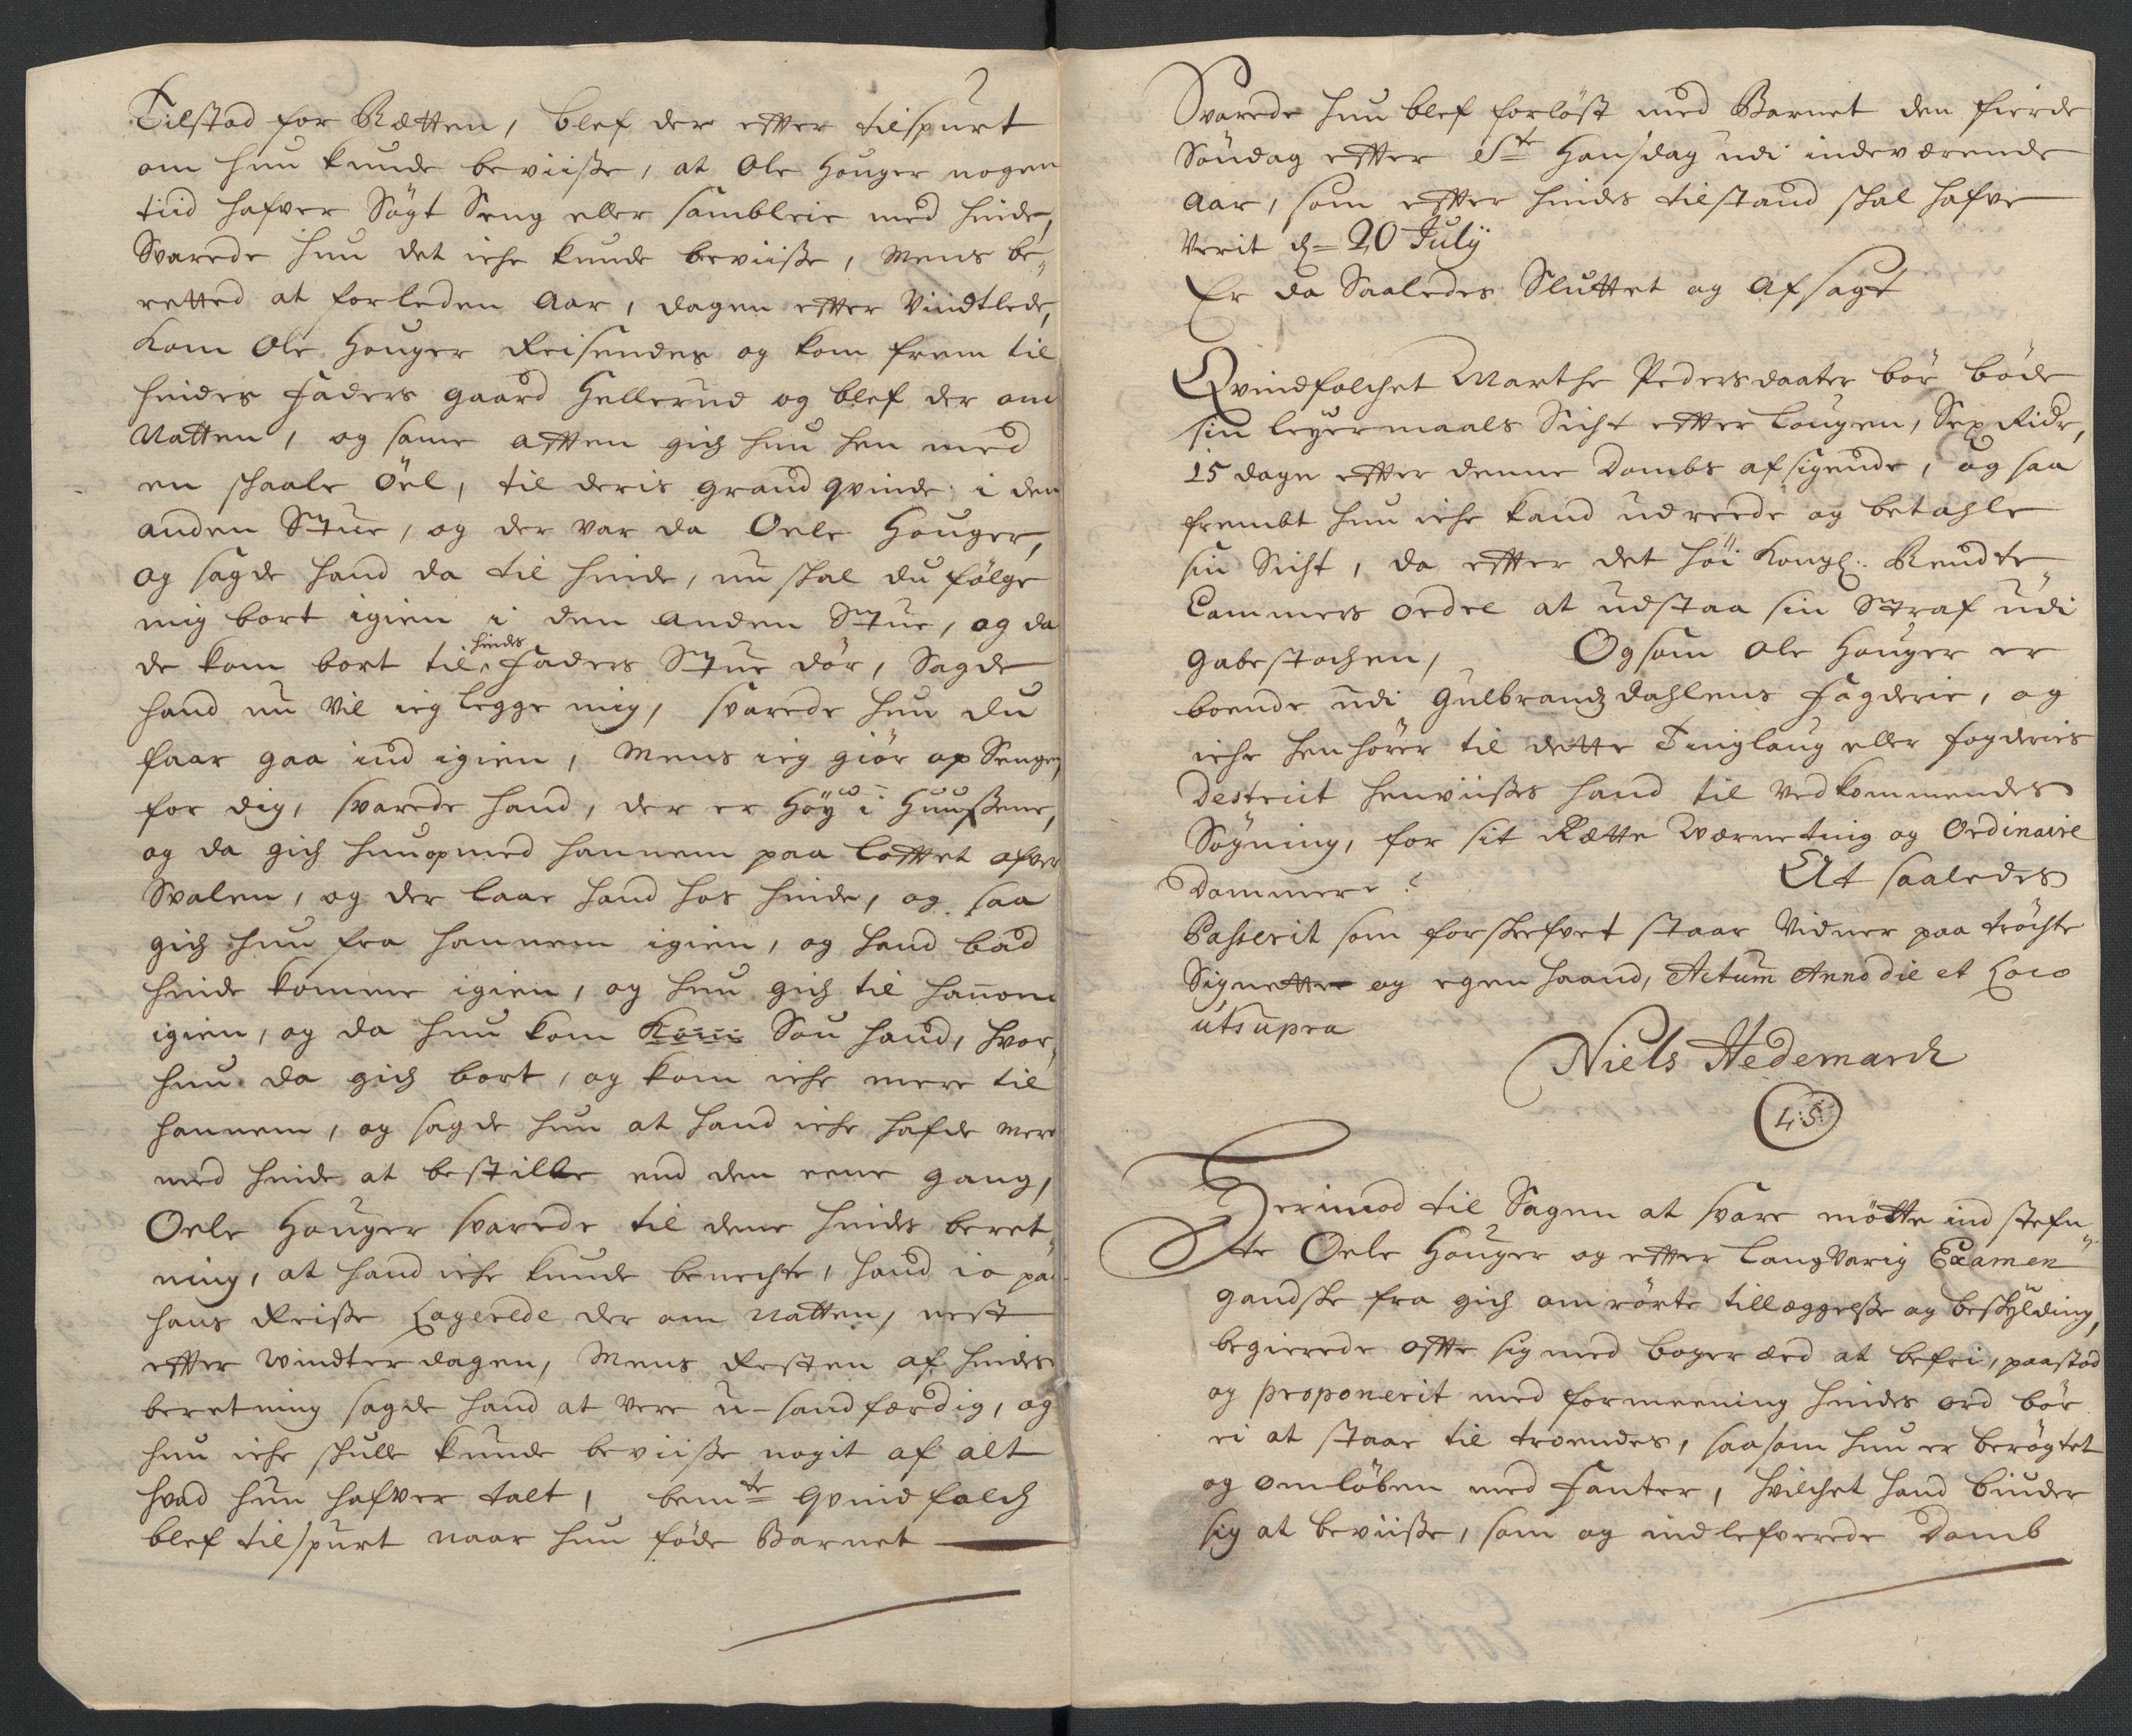 Tilstod for Rætten, blef der effter tilspurt
om hun kunde beviisse, at Ole Houger nogen
tiid hafver Søgt Seng eller sambleie med hinde,
Svarede hun det iche kunde beviisse, Mens be-
retted at forleden Aar, dagen effter Vindtlede,
kom Ole Houger Reisendes og kom frem til
hindes Faders gaard Hellerud og blef der om
Natten, og same afften gich hun hen med
en schaale Öel, til deris grandqvinde i den
anden Stue, og der var da Oele Houger,
og sagde hand da til hinde, nu schal du fölge
mig bort igien i den anden Stue, og da
de kom bort til hinds Faders Stue dör, Sagde
hand nu Vil ieg legge mig, svarede hun du
faar gaa ind igien, Mens ieg giör op Sengen
for dig, svarede hand, der er Höÿ i Huussene,
og da gich hun op med hannem paa lofftet ofver
Svalen, og der laae hand hos hinde, og saa
gich hun fra hannem igien, og hand bad
hinde komme igien, og hun gich til hannom
igien, og da hun kom kom Sou hand, hvor-
hun da gich bort, og kom iche mere til
hannem, og sagde hun at hand iche hafde mere
med hinde at bestille end den eene gang,
Oele Houger svarede til denne hindes beret-
ning, at hand iche kunde benechte, hand io paa
hans Reisse Logerede der om Natten, nest
effter Windterdagen, Mens Resten af hindes
beretning sagde hand at vere u-sandfærdig, og
hun iche schulle kunde beviisse nogit af alt
hvad hun hafver talt, bemte qvindfolch
blef tilspurt naar hun föde Barnet
Svarede hun blef forlöst med Barnet den fierde
Söndag effter Ste Hansdag udi indeværende
Aar, som effter hindes tilstand schal hafve
Verit d= 20 Julÿ
Er da Saaledes Sluttet og Afsagt
Qvindfolchet Marthe Pedersdaater bör böde
sin leyermaals Sicht effter Lougen, Sex Rdr,
15 dage effter denne Dombs afsigende, og saa
frembt hun iche kand udreede og betahle
sin Sicht, da effter det höi Kongl. Rendte
Cammers ordre at udstaa sin Straf udi
gabestochen, Og som Ole Houger er
boende udi Gulbrandzdahlens Fogderie, og
iche henhörer til dette Tinglaug eller fogderies
Destrict henviises hand til vedkommendes
Søgning, for sit Rætte Værneting og Ordinaire
Dommere. At saaledes
Passerit som forskrefvet staar Vidner paa tröchte
Signetter og egen haand, Actum Anno die et Loco
utsupra
Niels Hedemarch
L.S.
Herimod til Sagen at svare mötte indstefn-
te Oele Houger og effter langvarig Examen
gandske fra gich omrörte tillæggelsse og beskÿlding,
begierede offte sig med boger æd at befri, paastod
og proponerit med formeening hindes ord bör
ei at staae til troendes, saasom hun er berögtet
og omlöben med Fanter, hvilchet hand biuder
sig at beviisse, som og indlefverede Domb